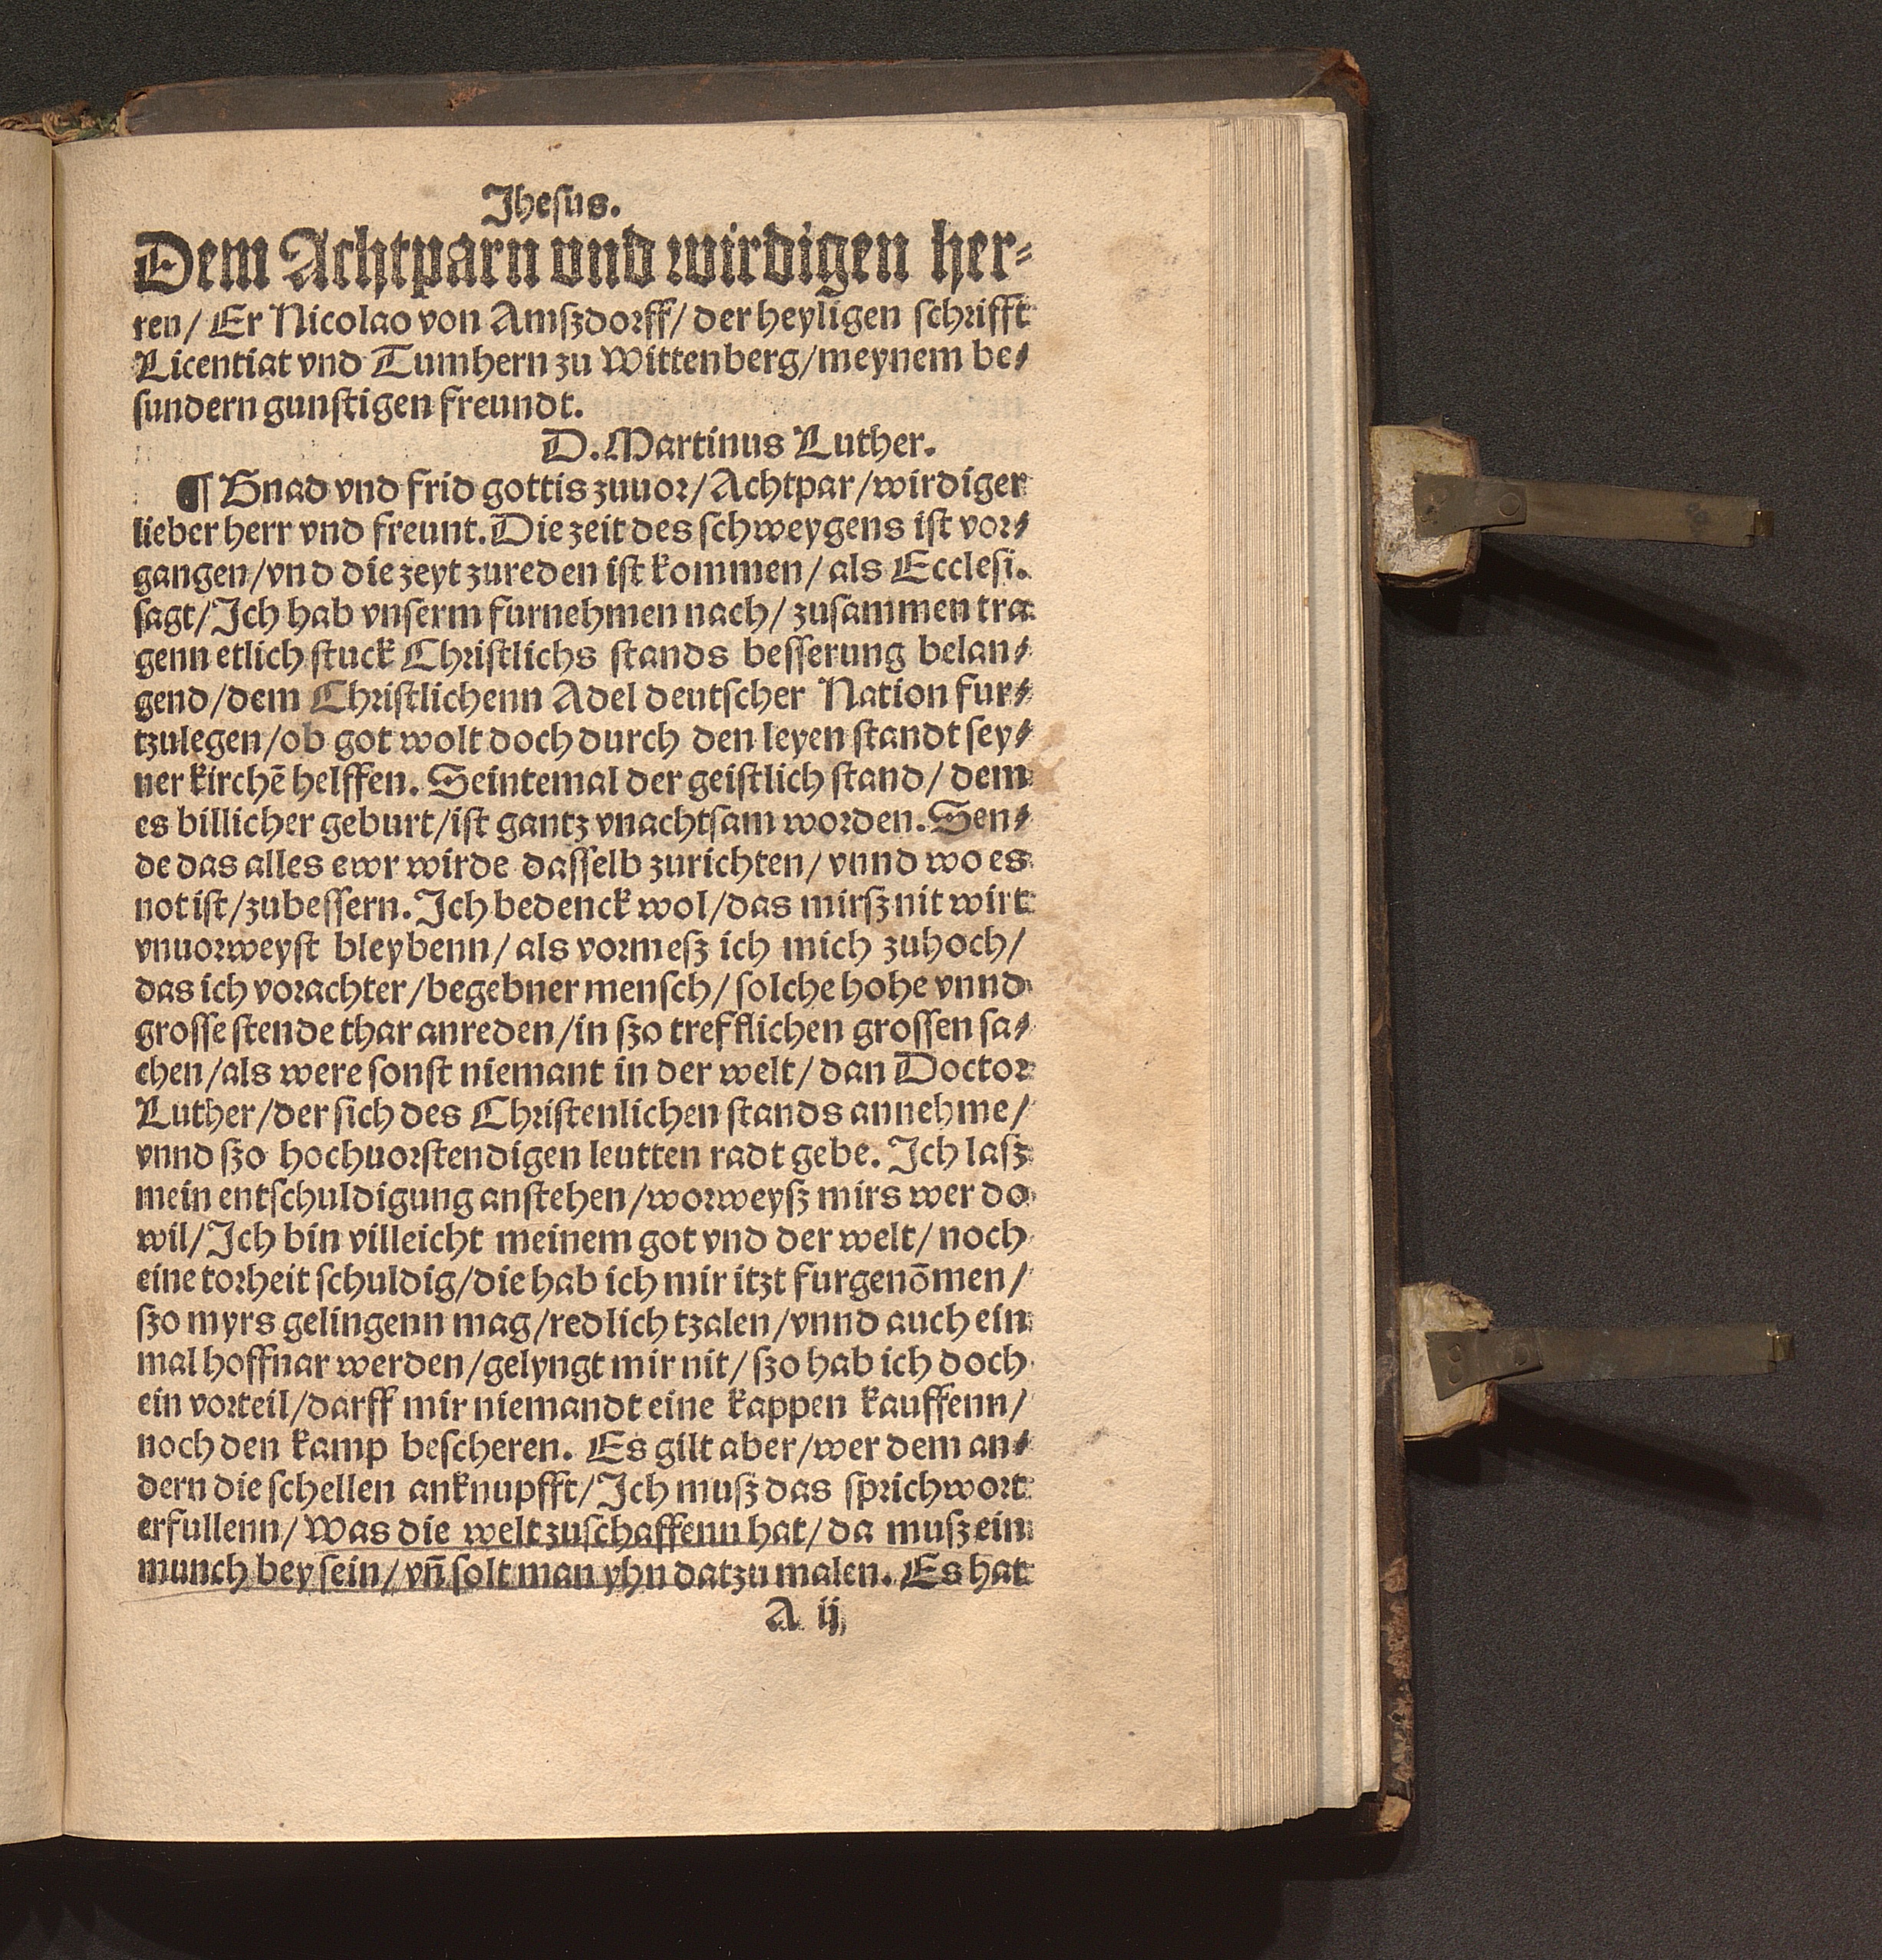 Jheſus.
Dem Achtparn vnd wirdigen her⸗
ren/ Er Nicolao von Amſzdorff/ der heyligen ſchrifft
Licentiat vnd Tumhern zu Wittenberg/meynem be⸗
ſundern gunſtigen freundt.
D. Martinus Luther.
¶ Gnad vnd frid gottis zuuor/Achtpar/wirdiger
lieber herr vnd freunt. Die zeit des ſchweygens iſt vor⸗
gangen/vnd die zeyt zureden iſt kommen/ als Eccleſi.
ſagt/Ich hab vnſerm furnehmen nach/ zuſammen tra
genn etlich ſtuck Chriſtlichs ſtands beſſerung belan⸗
gend/dem Chriſtlichenn Adel deutſcher Nation fur⸗
tzulegen/ob got wolt doch durch den leyen ſtandt ſey⸗
ner kirchē helffen. Seintemal der geiſtlich ſtand/ dem
es billicher geburt/iſt gantz vnachtſam worden. Sen⸗
de das alles ewr wirde daſſelb zurichten/ vnnd wo es
not iſt/zubeſſern. Ich bedenck wol/das mirſz nit wirt
vnuorweyſt bleybenn/ als vormeſz ich mich zuhoch/
das ich vorachter/begebner menſch/ ſolche hohe vnnd
groſſe ſtende thar anreden/in ſzo trefflichen groſſen ſa⸗
chen/als were ſonſt niemant in der welt/ dan Doctor
Luther/der ſich des Chriſtenlichen ſtands annehme/
vnnd ſzo hochuorſtendigen leutten radt gebe. Ich laſz
mein entſchuldigung anſtehen/worweyſz mirs wer do
wil/Ich bin villeicht meinem got vnd der welt/ noch
eine torheit ſchuldig/die hab ich mir itzt furgenōmen/
ſzo myrs gelingenn mag/redlich tzalen/vnnd auch ein
mal hoffnar werden/gelyngt mir nit/ ſzo hab ich doch
ein vorteil/darff mir niemandt eine kappen kauffenn/
noch den kamp beſcheren. Es gilt aber/wer dem an⸗
dern die ſchellen anknupfft/Ich muſz das ſprichwort
erfullenn/Was die welt zuſchaffenn hat/da muſz ein
munch bey ſein/vn̄ ſolt man yhn datzu malen. Es hat
A ij